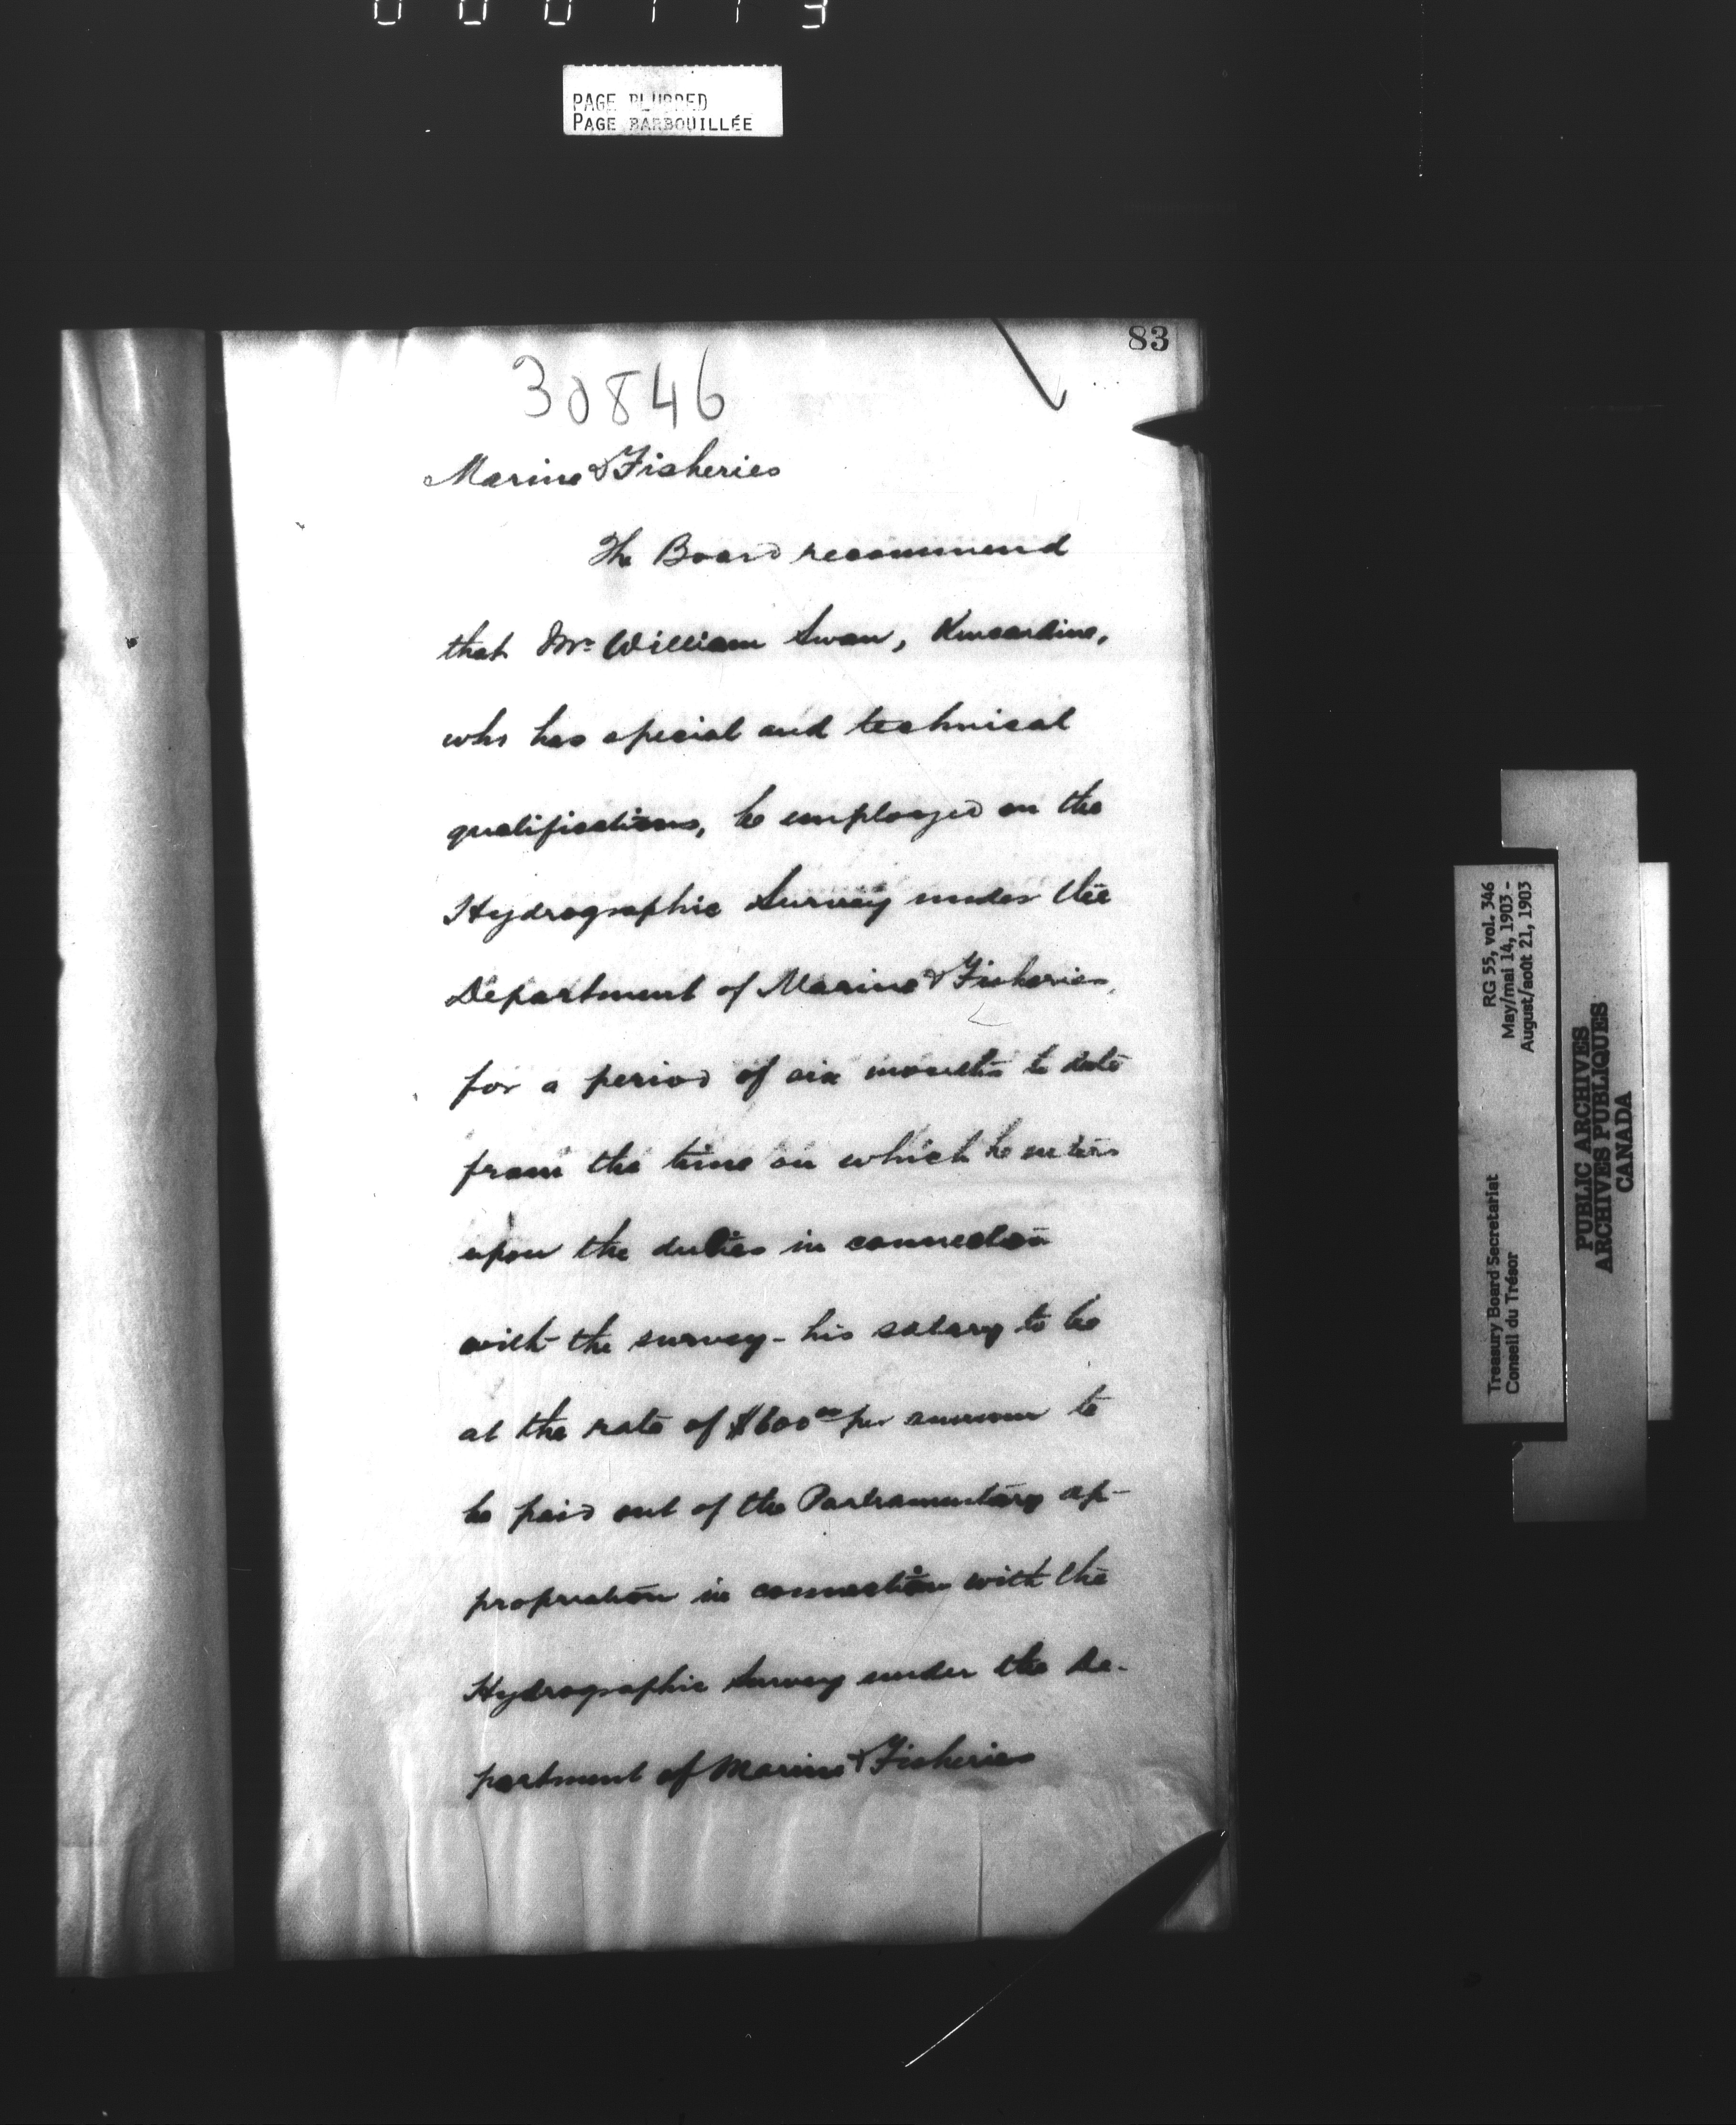 PAGE BLURRED
PAGE BARBOUILLÉE
83
30846
Marine & Fisheries
The Board recommend
that Mr. William Swan, Kincardine,
who has special and technical
qualifications, be employed on the
Hydrographic Survey under the
Department of Marine & Fisheries,
for a period of six months to date
from the time on which he enters
upon the duties in connection
with the survey - his salary to be
at the rate of $600 00 per annum to
be paid out of the Parliamentary ap-
propriation in connection with the
Hydrographic Survey under the De-
partment of Marine & Fisheries
Treasury Board Secretariat RG 55, vol. 346
Conseil du Trésor May/mai 14, 1903 -
August/août 21, 1903
PUBLIC ARCHIVES
ARCHIVES PUBLIQUES
CANADA